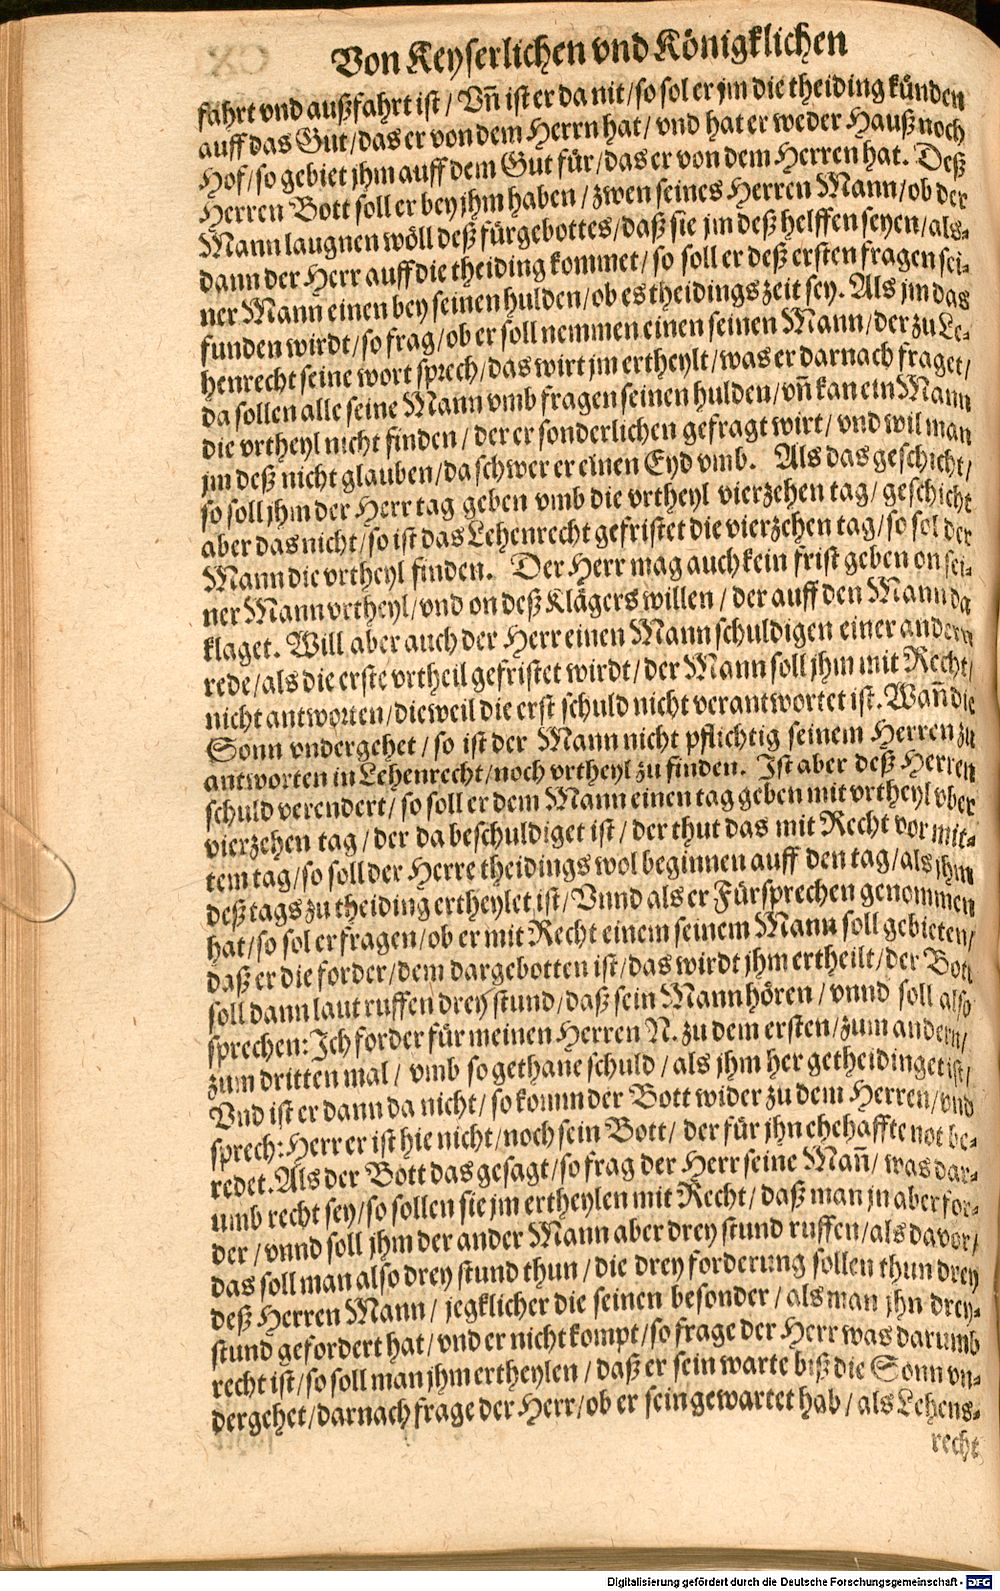 Von Keyserlichen vnd Königklichen
fahrt vnd außfahrt ist / Vñ ist er da nit / so sol er jm die theiding künden
auff das Gut / das er von dem Herrn hat / vnd hat er weder Hauß noch
Hof / so gebiet jhm auff dem Gut für / das er von dem Herren hat. Deß
Herren Bott soll er bey jhm haben / zwen seines Herren Mann / ob der
Mann laugnen wöll deß fürgebottes / daß sie jm deß helffen seyen / als-
dann der Herr auff die theiding kommet / so soll er deß ersten fragen sei-
ner Mann einen bey seinen hulden / ob es theidings zeit sey. Als jm das
funden wirdt / so frag / ob er soll nemmen einen seinen Mann / der zu Le-
henrecht seine wort sprech / das wirt jm ertheylt / was er darnach fraget /
da sollen alle seine Mann vmb fragen seinen hulden / vñ kan ein Mann
die vrtheyl nicht finden / der er sonderlichen gefragt wirt / vnd wil man
jm deß nicht glauben / da schwer er einen Eyd vmb. Als das geschicht /
so soll jhm der Herr tag geben vmb die vrtheyl vierzehen tag / geschicht
aber das nicht / so ist das Lehenrecht gefristet die vierzehen tag / so sol der
Mann die vrtheyl finden. Der Herr mag auch kein frist geben on sei-
ner Mann vrtheyl / vnd on deß Klägers willen / der auff den Mann da
klaget. Will aber auch der Herr einen Mann schuldigen einer andern
rede / als die erste vrtheil gefristet wirdt / der Mann soll jhm mit Recht /
nicht antworten / dieweil die erst schuld nicht verantwortet ist. Wañ die
Sonn vndergehet / so ist der Mann nicht pflichtig seinem Herren zu
antworten in Lehenrecht / noch vrtheyl zu finden. Ist aber deß Herren
schuld verendert / so soll er dem Mann einen tag geben mit vrtheyl vber
vierzehen tag / der da beschuldiget ist / der thut das mit Recht vor mit-
tem tag / so soll der Herre theidings wol beginnen auff den tag / als jhm
deß tags zu theiding ertheylet ist / Vnnd als er Fürsprechen genommen
hat / so sol er fragen / ob er mit Recht einem seinem Mann soll gebieten /
daß er die forder / dem dargebotten ist / das wirdt jhm ertheilt / der Bott
soll dann laut ruffen drey stund / daß sein Mann hören / vnnd soll also
sprechen: Ich forder für meinen Herren N. zu dem ersten / zum andern /
zum dritten mal / vmb so gethane schuld / als jhm her getheidinget ist /
Vnd ist er dann da nicht / so komm der Bott wider zu dem Herren / vnd
sprech: Herr er ist hie nicht / noch sein Bott / der für jhn ehehaffte not be-
redet. Als der Bott das gesagt / so frag der Herr seine Mañ / was dar-
umb recht sey / so sollen sie jm ertheylen mit Recht / daß man jn aber for-
der / vnnd soll jhm der ander Mann aber drey stund ruffen / als davor /
das soll man also drey stund thun / die drey forderung sollen thun drey
deß Herren Mann / jegklicher die seinen besonder / als man jhn drey-
stund gefordert hat / vnd er nicht kompt / so frage der Herr was darumb
recht ist / so soll man jhm ertheylen / daß er sein warte biß die Sonn vn-
dergehet / darnach frage der Herr / ob er sein gewartet hab / als Lehens-
recht
Digitalisierung gefördert durch die Deutsche Forschungsgemeinschaft - DFG